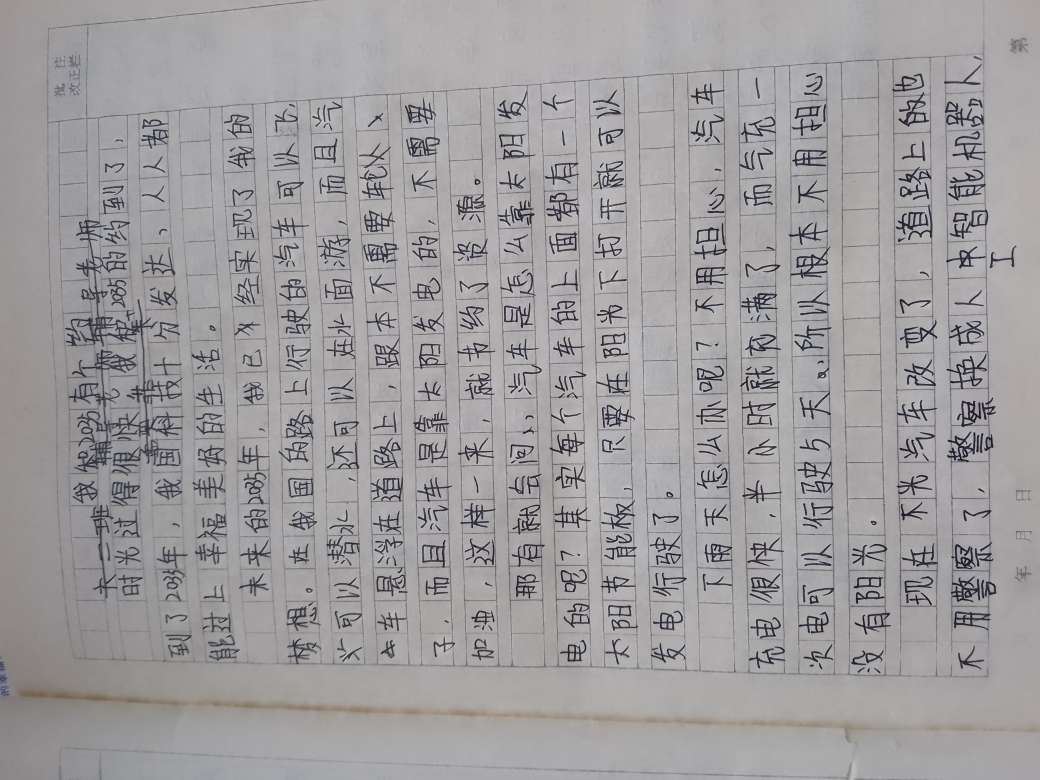 批注
改正栏
我和2035有个约
六二班 辅导老师
时光过得很快 2035的约到了，
到了2035年，我国科技十分发达、人人都
能过上幸福美好的生活。
未来的2035年，我已经实现了我的
梦想。在我国的路上行驶的汽车可以飞，
可以潜水，还可以在水面游，而且汽
车悬浮在道路上，跟本不需要轮
子，而且汽车是靠太阳发电的，不需要
加油，这样一来，就节约了资源。
那有就会问，汽车是怎么靠太阳发
电的呢？其实每个汽车的上面都有一个
太阳节能板，只要在阳光下打开就可以
发电行驶了。
下雨天怎么办呢？不用担心，汽车
充电很快，半小时就充满了，而气充一
次电可以行驶5天。所以根本不用担心
没有阳光。
现在不光汽车改变了，道路上的也
不用警察了，警察换成人工智能机器人，
年 月 日
第